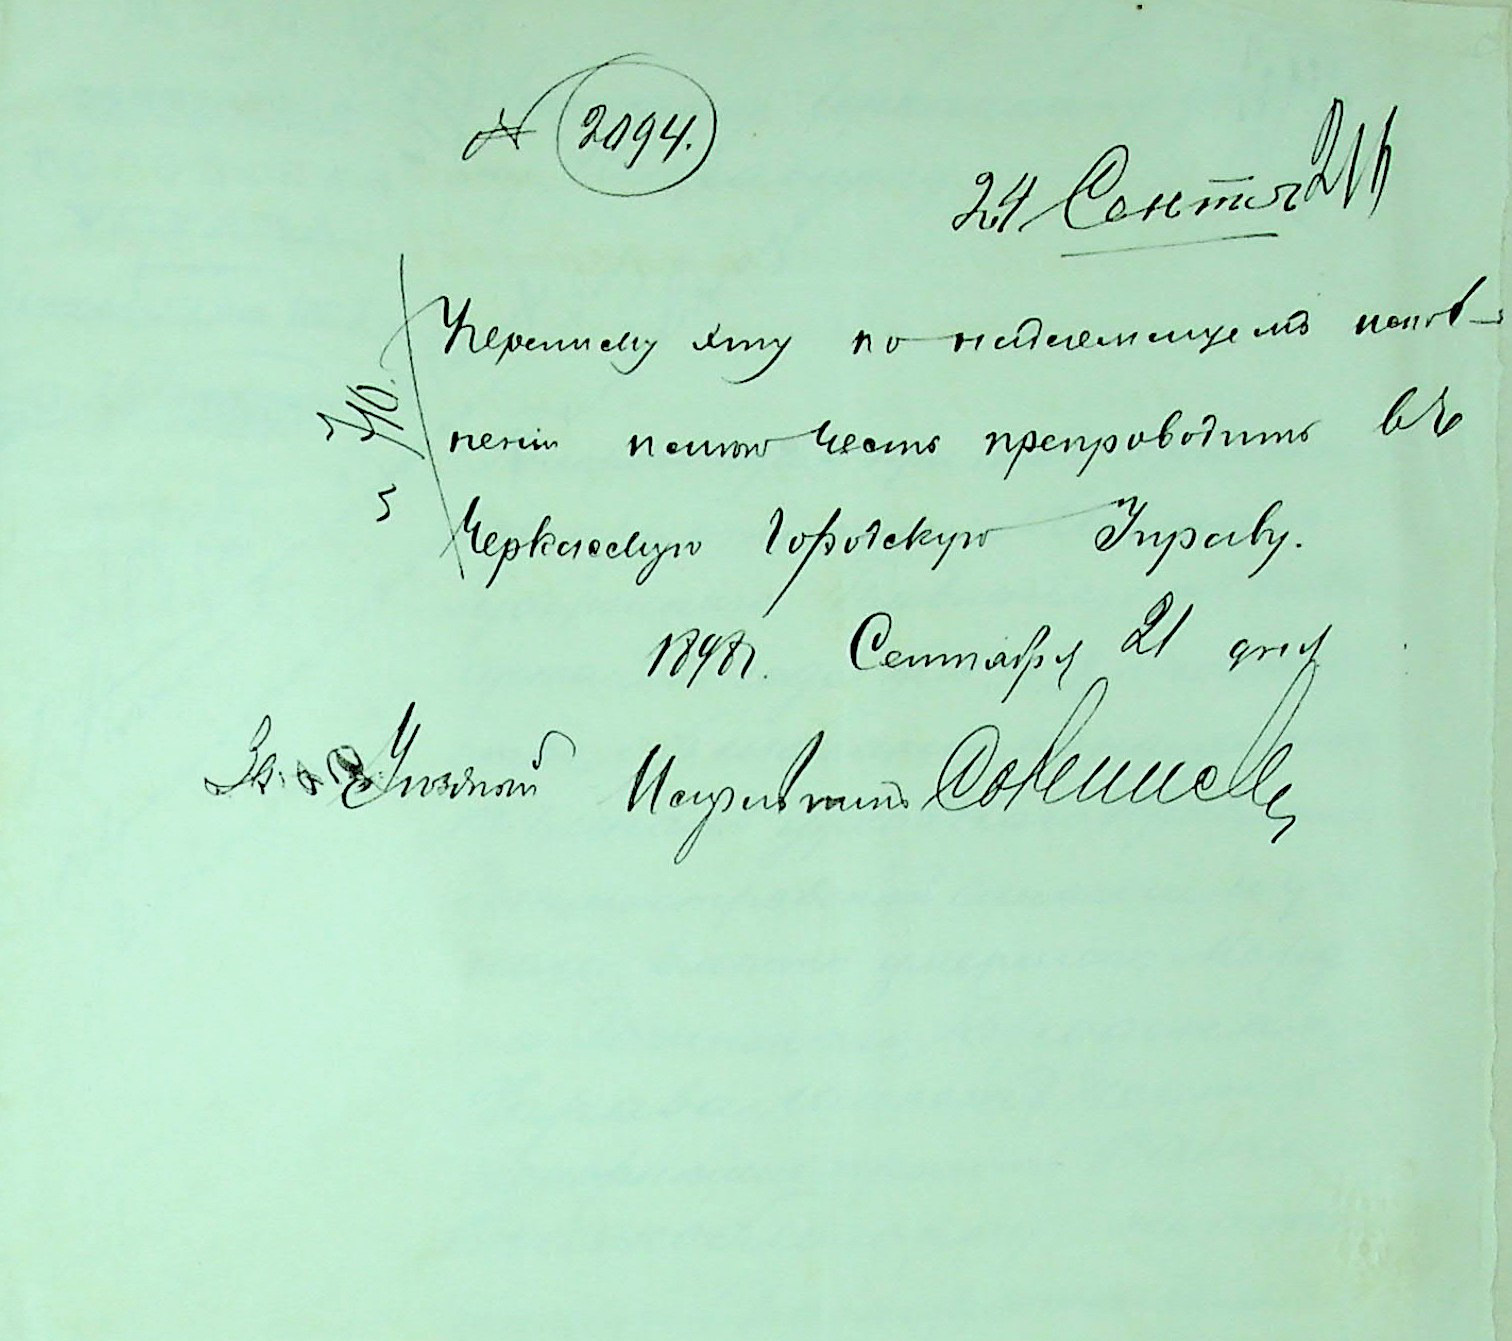 № 2094.
24 Сентя
Переписку эту по надлежащемъ испол-
неніи имѣю честь препроводить въ
Черкасскую Городскую Управу.
1898 г. Сентября 21 дня
За Уѣздный Исправникъ